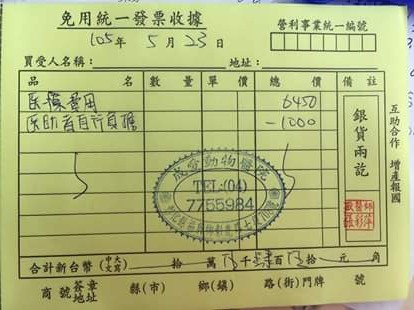 免用統一發票收據
營利事業統一編號
105年 5月23日
買受人名稱： 地址：
品 名 數量 單價 總價 備註
医療費用 6450
医助者自行負擔 -1000
銀貨兩訖
互助合作 增產報國
動物醫院
TEL:(04)
7755984
合計新台幣(中文大寫) 拾 萬 千 肆 百 拾 元 角
商號簽章地址 縣(市) 鄉(鎮) 路(街)門牌 號